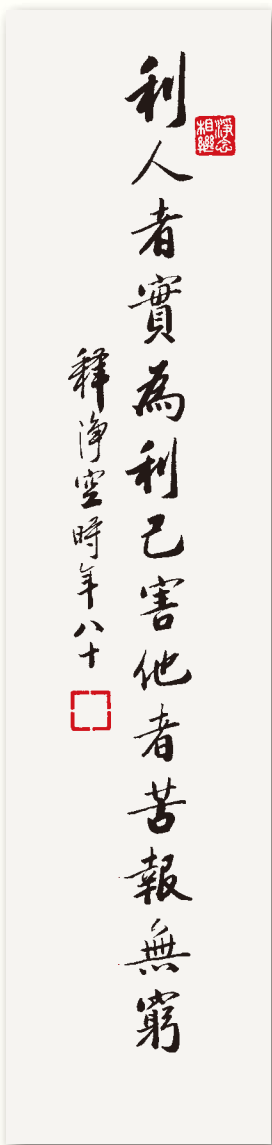 淨念相繼
利人者實為利己害他者苦報無窮
釋淨空時年八十